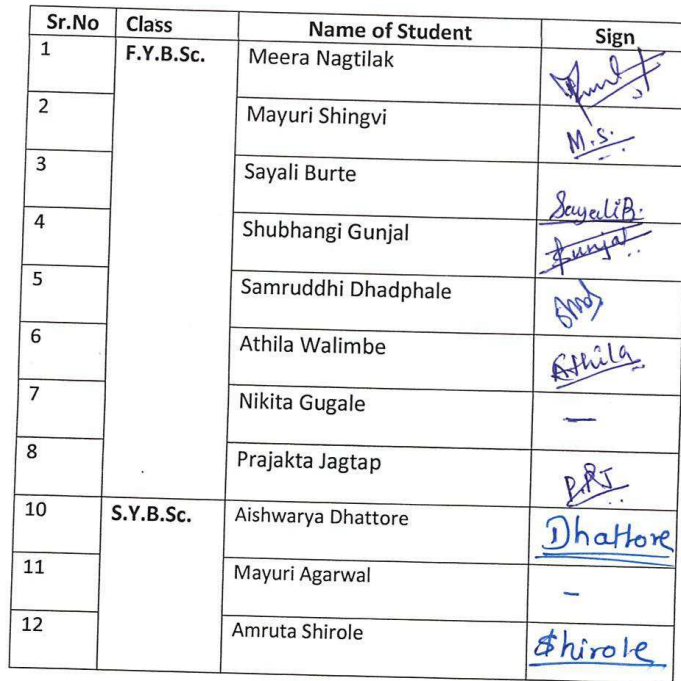 Sr.No Class Name of Student Sign
1 F.Y.B.Sc. Meera Nagtilak
2 Mayuri Shingvi M.S.
3 Sayali Burte SayaliB.
4 Shubhangi Gunjal Gunjal
5 Samruddhi Dhadphale
6 Athila Walimbe Athila
7 Nikita Gugale —
8 Prajakta Jagtap P.R.J
10 S.Y.B.Sc. Aishwarya Dhattore Dhattore
11 Mayuri Agarwal -
12 Amruta Shirole Shirole